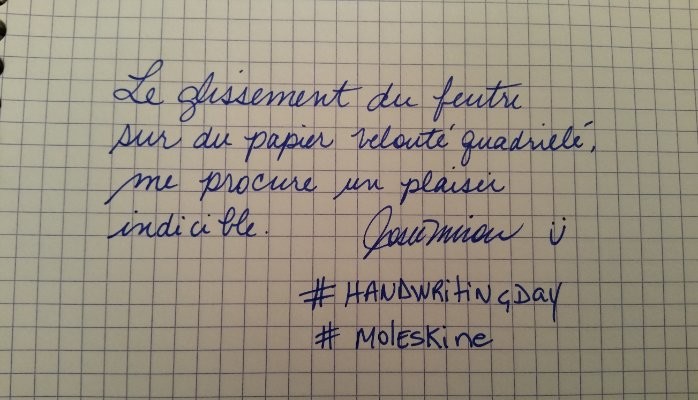 Le glissement du feutre
sur du papier velouté quadrielé,
me procure un plaisir
indicible. ü
#HANDWRitiNGDay
#MOlESKiNe